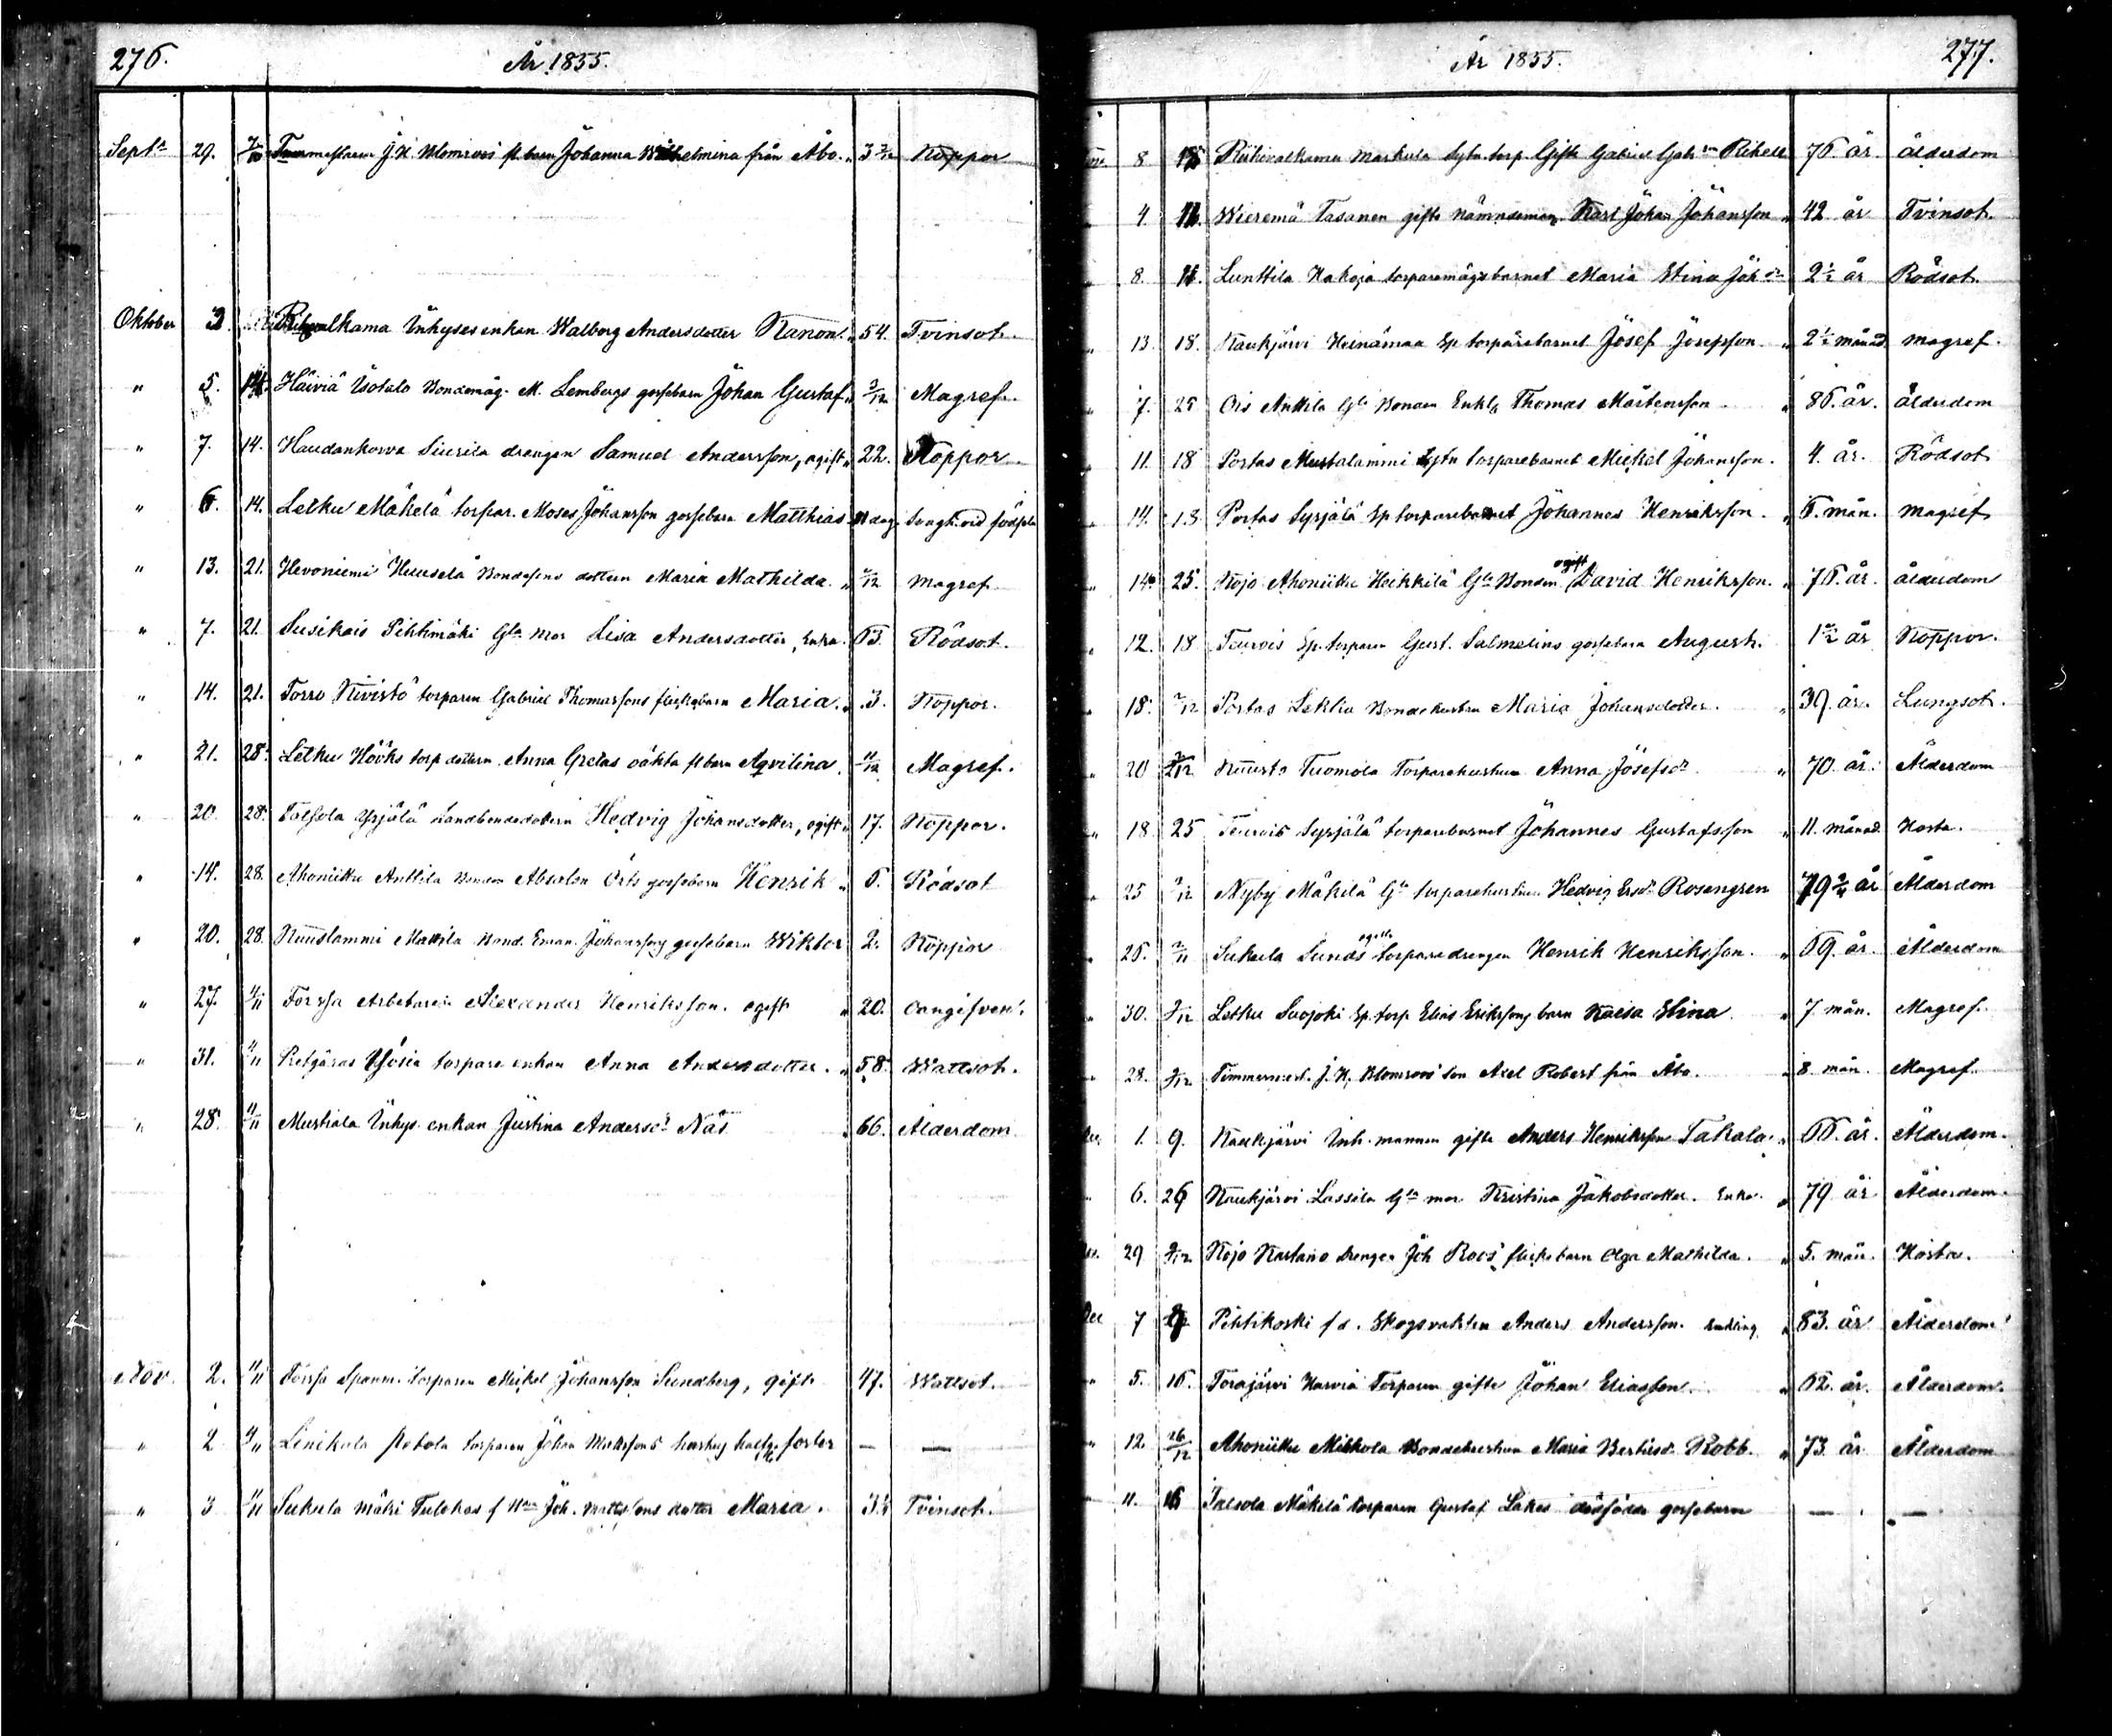 276.
År 1855.
Sept. 29. 7/10 J. H. Blomroos' fl. barn Johanna Wilhelmina från Åbo. 3 2/12 Koppor
Oktober 2. Inhyses enkan Walborg Andersdotter Kanon. 54. Tvinsot.
" 5. 14. Häiviä Isotalo Bondemåg. M. Lembergs gossebarn Johan Gustaf " 3/12 Magref.
" 7. 14. Haudankorva Siurila drengen Samuel Andersson, ogift " 22. Koppor
" 6. 14. Letku Mäkelä torpar. Moses Johansson gossebarn Matthias dag Svaghet vid födseln
" 13. 21. Hevoniemi Heuselä Bondesons dottern Maria Mathilda. " /12 Magref
" 7. 21. Susikais Pihtimäki Gla mor Lisa Andersdotter, Enka. 63. Rödsot.
" 14. 21. Torro Kivistö torparen Gabriel Thomassons flickobarn Maria. " 3. Koppor.
" 21. 28. Letku Hööks torp. dottern Anna Gretas oäkta fl. barn Aqvilina. 11/12 Magref.
" 20. 28. Talsola Yrjälä Landbondedottern Hedvig Johansdotter, ogift " 17. Koppor.
" 14. 28. Ahoniittu Anttila Bonden Absalon Örts gossebarn Henrik " 6. Rödsot
" 20. 28. Kuuslammi Mattila Bond. Eman. Johanssons gossebarn Wiktor 2. Koppor
" 27. 4/11 Forssa Arbetaren Alexander Henriksson. ogift " 20. oangifven.
" 31. 4/11 torpare enkan Anna Andersdotter. " 58. Wattsot.
" 28. 11/11 Mustiala Inhys. enkan Justina Andersdr Näs " 66. Ålderdom
Nov. 2. 11/11 Forssa Spanm. torparen Mickel Johansson Sundberg, gift 47. Wattsot.
" 2 4/11 Linikala torparen Johan Mattssons hustrus foster — —
" 3 11/11 Sukula Mäki Tulokas Joh. Mattssons dotter Maria. 3 Tvinsot.
År 1855.
277.
8 18 Markula Sytn. torp. Gift Gabriel Gabr.son Rihell 76. år. Ålderdom
4. 11. Wieremä Tasanen gifte nämndeman Karl Johan Johansson " 42 år Tvinsot.
8. 11. Lunttila Hakoja torparemågsbarnet Maria Stina Joh.dr 2 1/2 år Rödsot.
" 13. 18. Kaukjärvi Heinämaa Sp torparebarnet Josef Josepsson " 2 1/2 månad magref.
" 7. 25 Ois Anttila Gla Bonden Enkl. Thomas Mårtensson " 86. år. ålderdom
" 11. 18 Portas Mustalammi Sytn torparebarnet Mickel Johansson. 4. år. Rödsot
" 14. 18. Portas Syrjälä Sp torparebarnet Johannes Henriksson. " 6. mån. magref
" 14. 25. Kojo Ahoniittu Heikkilä Gla Bonden ogift David Henriksson. " 76. år. ålderdom
" 12. 18 Teurois Sp. torparen Gust. Salmelins gossebarn August. 1 år Koppor.
" 18. 2/12 Portas Leklia Bondehustru Maria Johansdotter. " 39. år. Lungsot.
" 20 2/12 Tuomola Torparehustrun Anna Josefsdr " 70. år. Ålderdom
" 18 25 Teurois Syrjälä torparebarnet Johannes Gustafsson " 11. månad. Hosta.
" 25 2/12 Nyby Mäkilä Gla torparehustrun Hedvig Ersdr Rosengren 79 år Ålderdom
" 25. Sukula Sunds ogifte torparedrengen Henrik Henriksson. " 69. år. Ålderdom
" 30. 2/12 Letku Suojoki Sp. torp. Elias Erikssons barn Kaisa Stina " 7. mån. Magref.
" 28. 2/12 Timmerm. J. H. Blomroos' son Axel Robert från Åbo. " 8. mån. Magref.
Dec. 1. 9. Kaukjärvi Inh. mannen gifte Anders Henriksson Takala. " 66. år. Ålderdom.
" 6. 26 Kaukjärvi Lassila Gla mor Kristina Jakobsdotter. Enka. " 79 år Ålderdom.
29 2/12 Kojo Kartano Drengen Joh Roos' flickobarn Olga Mathilda. " 5. mån. Hosta.
Dec 7 9 Pihtikoski f.d. Skogsvakten Anders Andersson. Enkling " 83. år Ålderdom
" 5. 16. Torajärvi Harvia Torparen gifte Johan Eliasson. " 62. år. Ålderdom.
" 12. 26/12 Ahoniittu Mikkola Bondehustrun Maria Bertilsdr Robb. " 73. år. Ålderdom
11. 16 Talsola Mäkilä torparen Gustaf Lakes dödfödde gossebarn — —